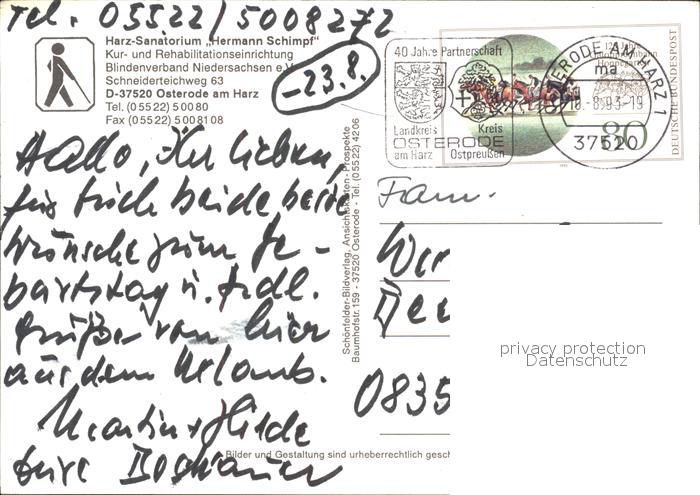 Tel. 05522/5008272
Harz-Sanatorium „Hermann Schimpf"
Kur- und Rehabilitationseinrichtung
Blindenverband Niedersachsen e.V.
Schneiderteichweg 63
D-37520 Osterode am Harz
Tel. (05522) 50080
Fax (05522) 5008108
-23.8.
Hallo, Ihr Lieben,
für Euch beide beste
Wünsche zum Ge-
burtstag u. frdl.
Grüße von hier
aus dem Urlaub.
Martin + Hilde
Schönfelder-Bildverlag, Ansichtskarten - Prospekte
Baumhofstr. 159 - 37520 Osterode - Tel. (05522) 4206
40 Jahre Partnerschaft
Landkreis Kreis
OSTERODE
am Harz Ostpreußen
OSTERODE AM HARZ 1
ma
37520
80
DEUTSCHE BUNDESPOST
Fam.
0835
privacy protection
Datenschutz
Bilder und Gestaltung sind urheberrechtlich gesch